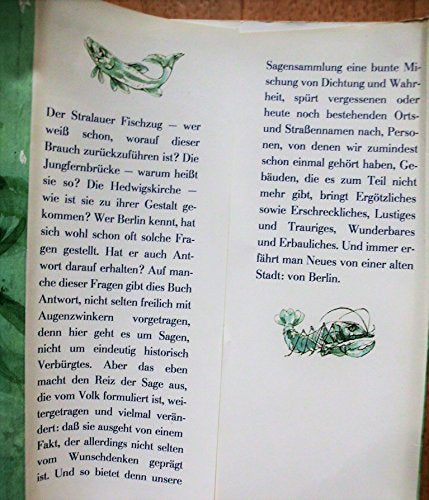 Der Stralauer Fischzug — wer
weiß schon, worauf dieser
Brauch zurückzuführen ist? Die
Jungfernbrücke — warum heißt
sie so? Die Hedwigskirche —
wie ist sie zu ihrer Gestalt ge-
kommen? Wer Berlin kennt, hat
sich wohl schon oft solche Fra-
gen gestellt. Hat er auch Ant-
wort darauf erhalten? Auf man-
che dieser Fragen gibt dies Buch
Antwort, nicht selten freilich mit
Augenzwinkern vorgetragen,
denn hier geht es um Sagen,
nicht um eindeutig historisch
Verbürgtes. Aber das eben
macht den Reiz der Sage aus,
die vom Volk formuliert ist, wei-
tergetragen und vielmal verän-
dert: daß sie ausgeht von einem
Fakt, der allerdings nicht selten
vom Wunschdenken geprägt
ist. Und so bietet denn unsere
Sagensammlung eine bunte Mi-
schung von Dichtung und Wahr-
heit, spürt vergessenen oder
heute noch bestehenden Orts-
und Straßennamen nach, Perso-
nen, von denen wir zumindest
schon einmal gehört haben, Ge-
bäuden, die es zum Teil nicht
mehr gibt, bringt Ergötzliches
sowie Erschreckliches, Lustiges
und Trauriges, Wunderbares
und Erbauliches. Und immer er-
fährt man Neues von einer alten
Stadt: von Berlin.